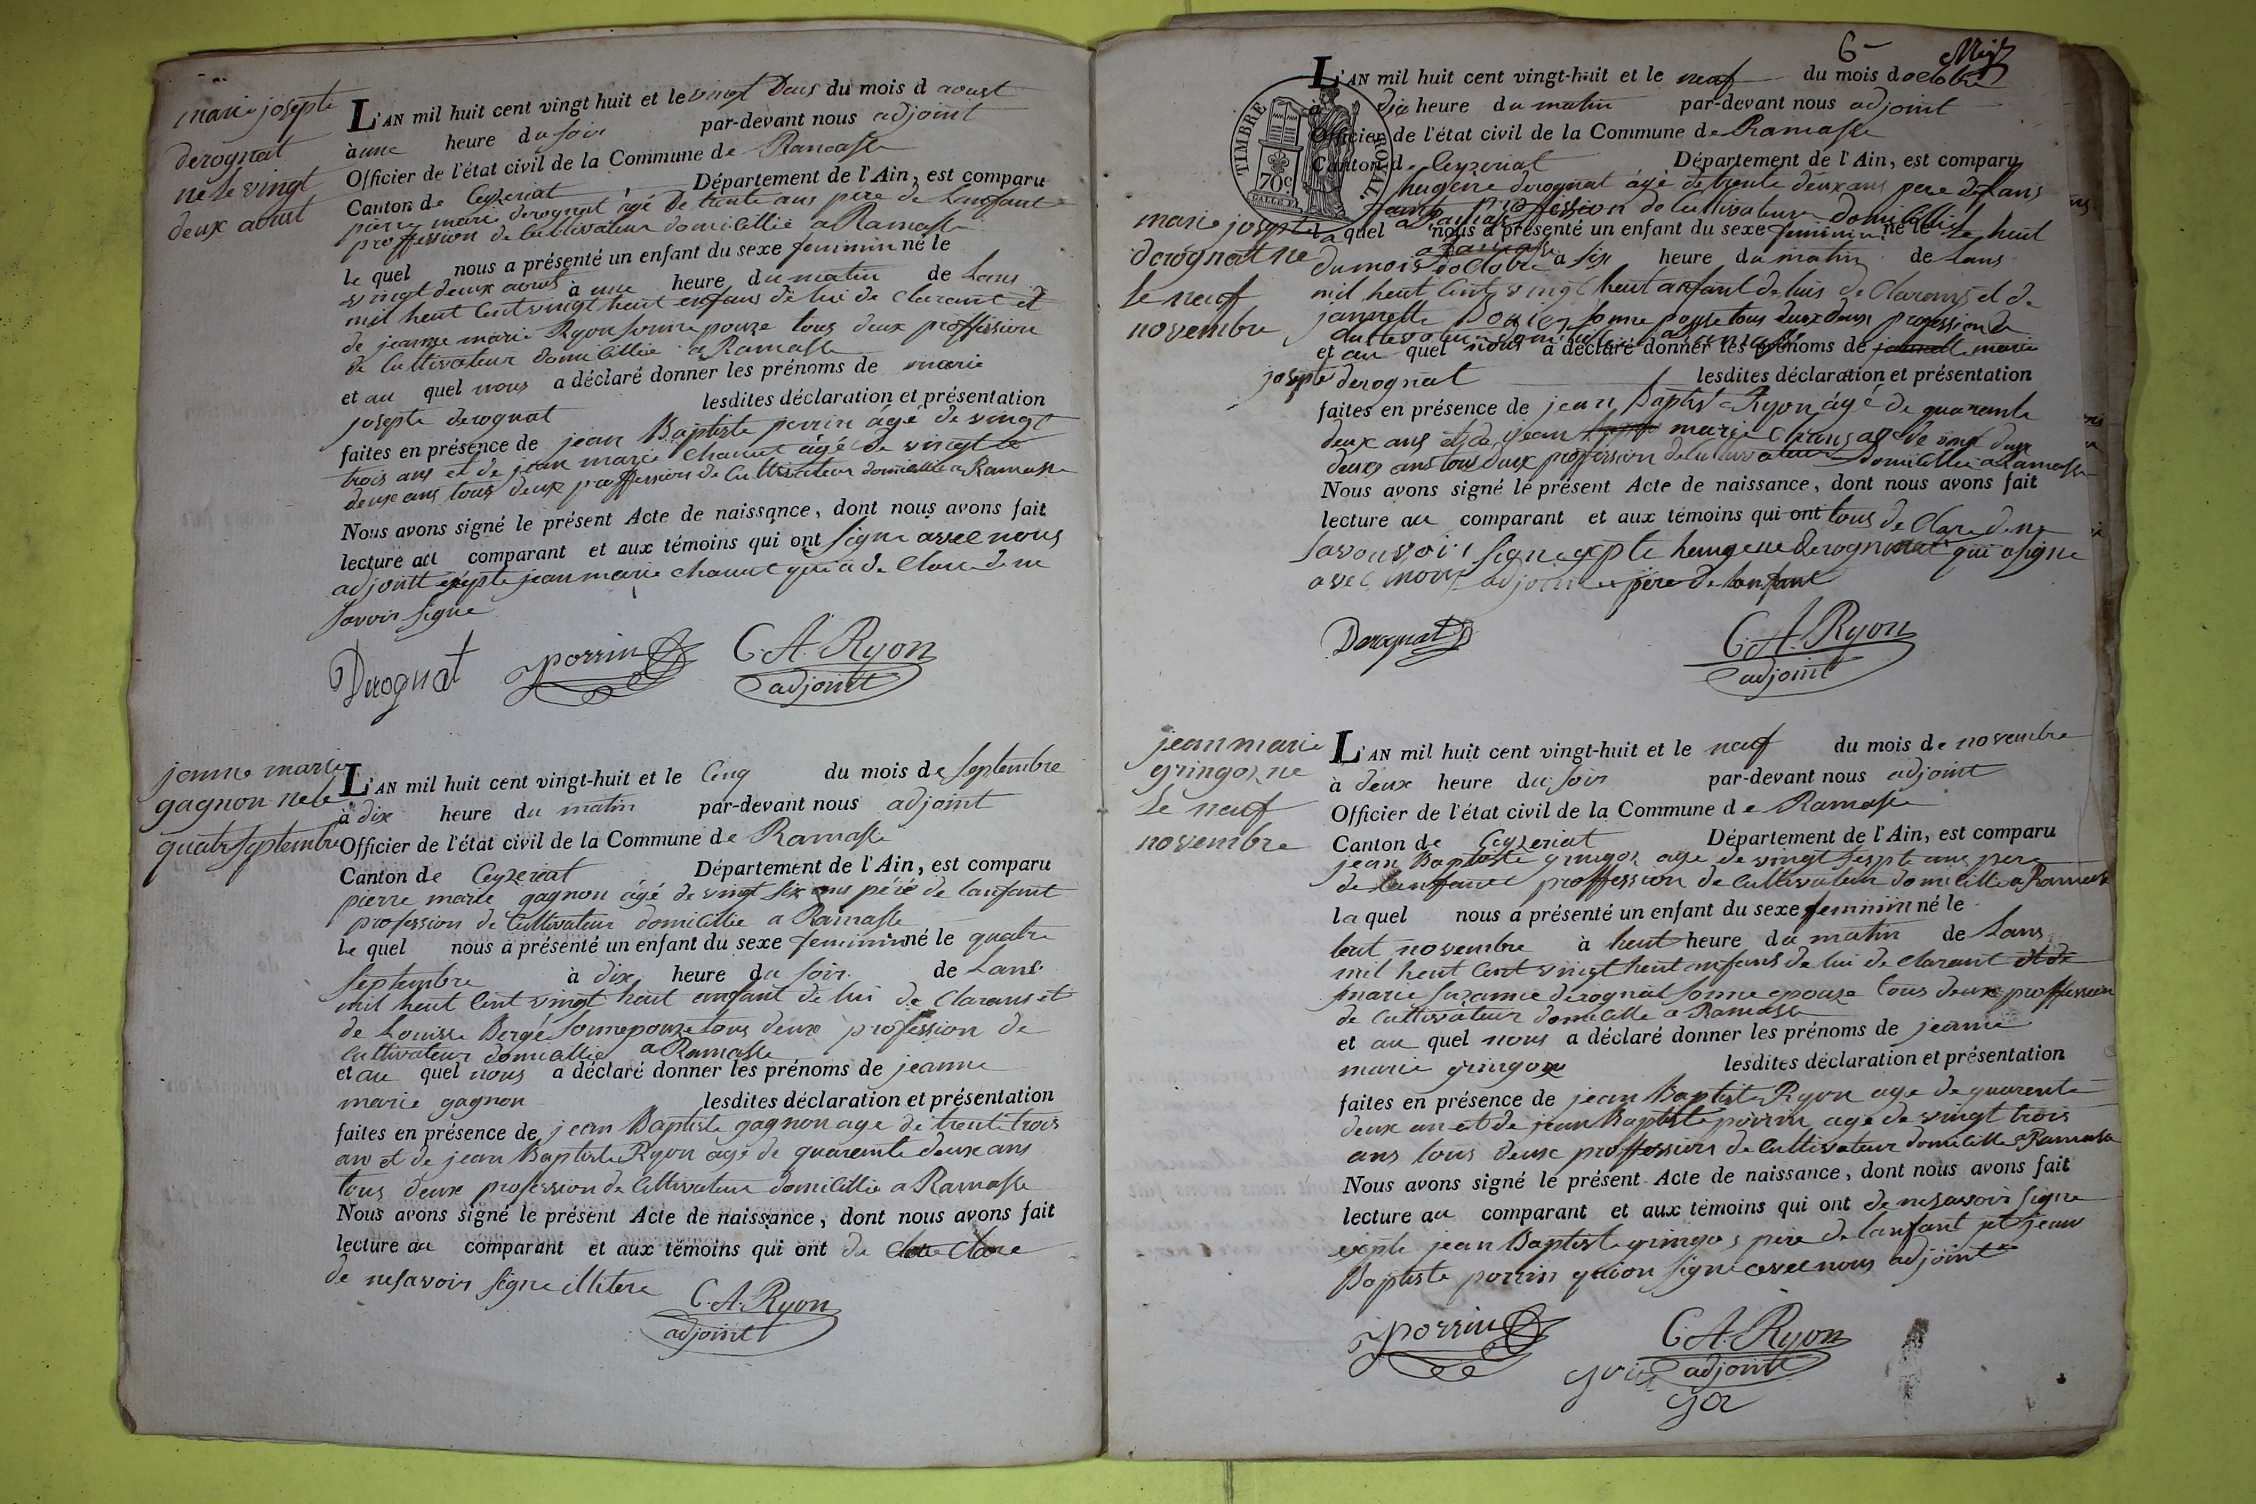 marie josepte
derognat
né le vingt
deux aout
L'AN mil huit cent vingt huit et le vingt Deus du mois d aoust
à une heure du soir par-devant nous adjoint
Officier de l'état civil de la Commune de Ramasse
Canton de Ceyzeriat Département de l'Ain, est comparu
pierre marie derognat âgé de trente ans père de Lanfant
proffession de Cultivateur domicillié a Ramasse
le quel nous a présenté un enfant du sexe feminin né le
vingt deux aout à une heure du matin de Lans
mil heut Cent vingt heut enfans de lui de Clarant et
de jeanne marie Ryon sonne pouze tous deux proffission
de Cultivateur domicillié a Ramasse
et au quel nous a déclaré donner les prénoms de marie
josepte derognat lesdites déclaration et présentation
faites en présence de jean Baptiste perrin âgé de vingt
trois ans et de jean marie Chanut âgé de vingt
deux ans tous deux proffession de Cultivateur domicillié a Ramasse
Nous avons signé le présent Acte de naissance, dont nous avons fait
lecture au comparant et aux témoins qui ont signe avec nous
adjoint exepte jean marie Chanut qui a de Clare de ne
savoir signe
Derognat perrin C.A. Ryon
adjoint
jeanne marie
gagnon né le
quatr septembre
L'AN mil huit cent vingt-huit et le Cinq du mois de septembre
à dix heure du matin par-devant nous adjoint
Officier de l'état civil de la Commune de Ramasse
Canton de Ceyzeriat Département de l'Ain, est comparu
pierre marie gagnon âgé de vingt six ans péré de lanfant
profession de Cultivateur domicillie a Ramasse
Le quel nous a présenté un enfant du sexe feminin né le quatre
septembre à dix heure du soir de Lans
mil heut Cent vingt heut anfant de lui de Clarans et
de Louisse Bergé sonne pouze tous deux profession de
Cultivateur domicallie a Ramasse
et au quel nous a déclaré donner les prénoms de jeanne
marie gagnon lesdites déclaration et présentation
faites en présence de jean Baptiste gagnon age de trente trois
an et de jean Baptiste Ryon age de quarente deux ans
tous deux profession de Cultivateur domicillié a Ramasse
Nous avons signé le présent Acte de naissance, dont nous avons fait
lecture au comparant et aux témoins qui ont de Clare
de ne savoir signe illitere
C.A. Ryon
adjoint
6
TIMBRE ROYAL
70c
L'AN mil huit cent vingt-huit et le neuf du mois doctobre
à dix heure du matin par-devant nous adjoint
Officier de l'état civil de la Commune de Ramasse
Canton de Ceyzeriat Département de l'Ain, est comparu
heugene derognat âgé de trente deux ans pere de Lans
fant proffession de Cultivateur domicillié
a Ramasse
marie josepte
derognat ne
le neuf
novembre
la quel nous a présenté un enfant du sexe feminin né le le heut
du mois doctobre à six heure du matin de Lans
mil heut Cent vingt heut anfant de luis de Clarans et de
jannette sonne pouse tous deux profession de
et au quel nous a déclaré donner les prénoms de marie
josepte derognat lesdites déclaration et présentation
faites en présence de jean Baptiste Ryon âgé de quarante
deux ans et de jean marie age de vingt deux
deux ans tous deux proffission de Cultivateur domicillié a Ramasse
Nous avons signé le présent Acte de naissance, dont nous avons fait
lecture au comparant et aux témoins qui ont tous de Clare de ne
savouvoir signe exepte heugene derognat qui a signe
avec nous adjoint père de lanfant
Derognat C.A. Ryon
adjoint
jean marie
gringoz ne
Le neuf
novembre
L'AN mil huit cent vingt-huit et le neuf du mois de novembre
à deux heure du soir par-devant nous adjoint
Officier de l'état civil de la Commune de Ramasse
Canton de Ceyzeriat Département de l'Ain, est comparu
jean Baptiste gringoz age de vingt septe ans pere
de lanfant proffession de Cultivateur domicillie a Ramasse
la quel nous a présenté un enfant du sexe feminin né le
heut novembre à heut heure du matin de Lans
mil heut Cent vingt heut enfans de lui de Clarant et de
marie suzanne derognat sonne epouze tous deux proffession
de Cultivateur domicillie a Ramasse
et au quel nous a déclaré donner les prénoms de jeanne
marie gringoz lesdites déclaration et présentation
faites en présence de jean Baptiste Ryon age de quarente
deux an et de jean Baptiste perrin age de vingt trois
ans tous deux proffession de Cultivateur domicillié a Ramasse
Nous avons signé le présent Acte de naissance, dont nous avons fait
lecture au comparant et aux témoins qui ont de ne savoir signe
exepte jean Baptiste gringoz père de lanfant et jean
Baptiste perrin qui on signe avec nous adjoint
perrin C.A. Ryon
adjoint